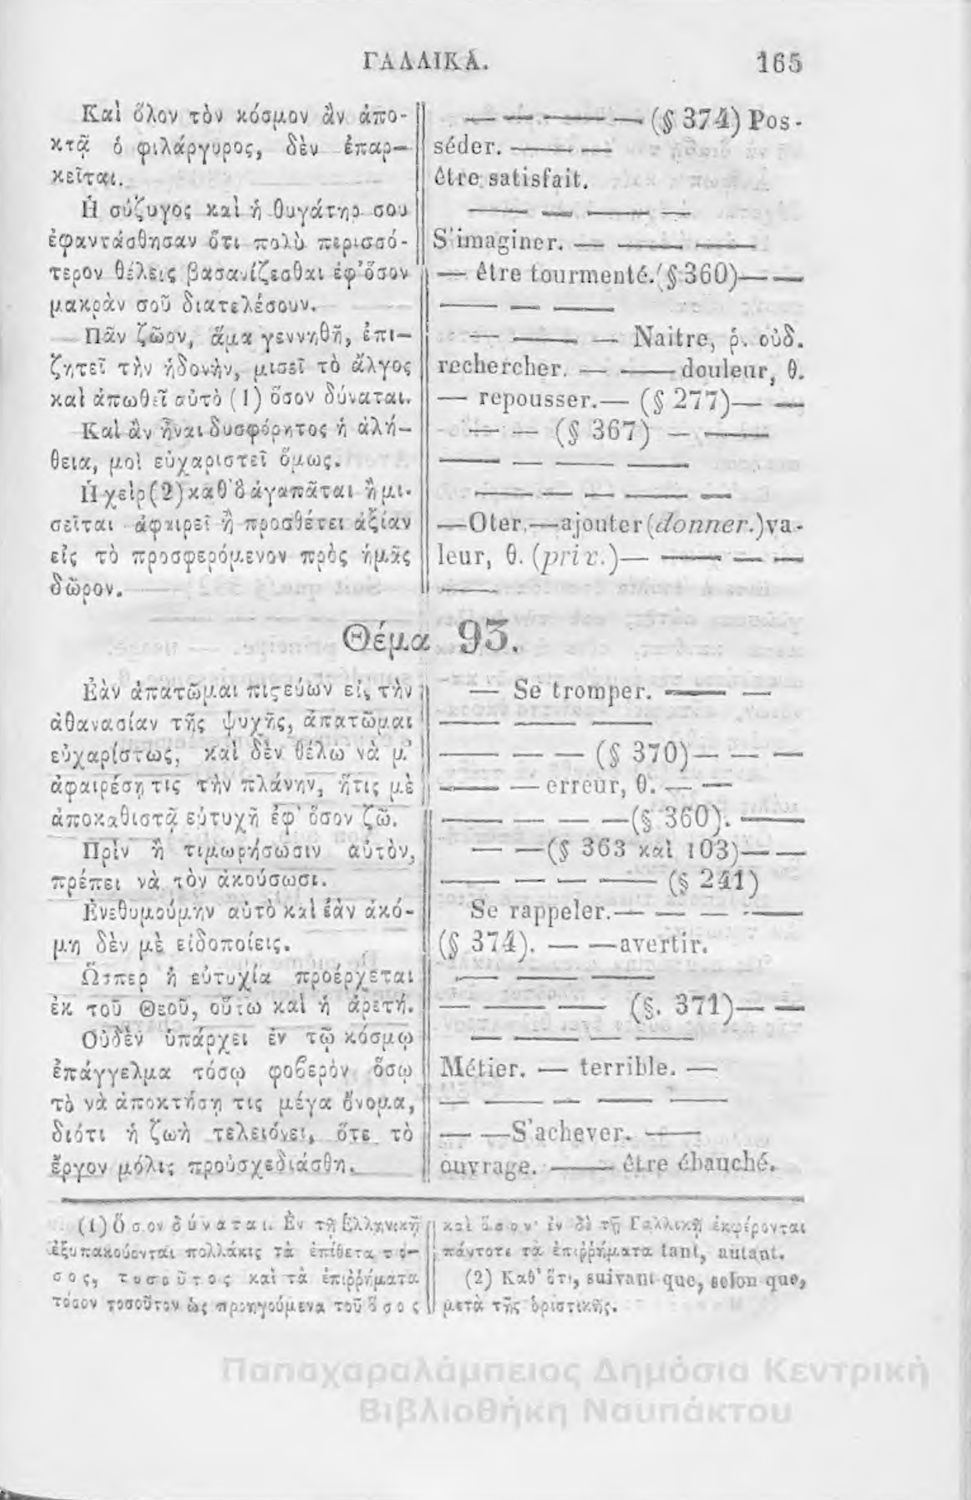 ΓΑΛΛΙΚΑ. 165
Καὶ ὅλον τὸν κόσμον ἂν ἀπο-
κτᾷ ὁ φιλάργυρος, δὲν ἐπαρ-
κεῖται.
Ἡ σύζυγος καὶ ἡ θυγάτηρ σου
ἐφαντάσθησαν ὅτι πολὺ περισσό-
τερον θέλεις βασανίζεσθαι ἐφ' ὅσον
μακρὰν σοῦ διατελέσουν.
Πᾶν ζῶον, ἅμα γεννηθῇ, ἐπι-
ζητεῖ τὴν ἡδονὴν, μισεῖ τὸ ἄλγος
καὶ ἀπωθεῖ αὐτὸ (1) ὅσον δύναται.
Καὶ ἂν ἦναι δυσφόρητος ἡ ἀλή-
θεια, μοὶ εὐχαριστεῖ ὅμως.
Ἡ χεὶρ (2) καθ' ὃ ἀγαπᾶται ἢ μι-
σεῖται ἀφαιρεῖ ἢ προσθέτει ἀξίαν
εἰς τὸ προσφερόμενον πρὸς ἡμᾶς
δῶρον.
— — — — (§ 374) Pos-
séder. — —
être satisfait.
— — — —
S'imaginer. — — —
— être tourmenté. (§ 360) — —
— — —
— — — Naitre, ῥ. οὐδ.
rechercher. — — douleur, θ.
— repousser. — (§ 277) — —
— — (§ 367) — —
— — — —
— — — — —
— Oter. — ajouter (donner.) va-
leur, θ. (prix.) — — — —
—
Θέμα 93.
Ἐὰν ἀπατῶμαι πιςεύων εἰς τὴν
ἀθανασίαν τῆς ψυχῆς, ἀπατῶμαι
εὐχαρίστως, καὶ δὲν θέλω νὰ μ'
ἀφαιρέσῃ τις τὴν πλάνην, ἥτις μὲ
ἀποκαθιστᾷ εὐτυχῆ ἐφ' ὅσον ζῶ.
Πρὶν ἢ τιμωρήσωσιν αὐτὸν,
πρέπει νὰ τὸν ἀκούσωσι.
Ἐνεθυμούμην αὐτὸ καὶ ἐὰν ἀκό-
μη δὲν μὲ εἰδοποίεις.
Ὥσπερ ἡ εὐτυχία προέρχεται
ἐκ τοῦ Θεοῦ, οὕτω καὶ ἡ ἀρετή.
Οὐδὲν ὑπάρχει ἐν τῷ κόσμῳ
ἐπάγγελμα τόσῳ φοβερὸν ὅσῳ
τὸ νὰ ἀποκτήσῃ τις μέγα ὄνομα,
διότι ἡ ζωὴ τελειόνει, ὅτε τὸ
ἔργον μόλις προὐσχεδιάσθη.
— Se tromper. — —
— — —
— — — (§ 370) — — —
— — erreur, θ. — —
— — — — (§ 360). —
— — (§ 363 καὶ 103) — —
— — — — (§ 241)
Se rappeler. — — — —
(§ 374). — — avertir.
— — —
— — — — (§. 371) — —
— — — —
Métier. — terrible. —
— — — — —
— — S'achever. —
ouvrage. — être ébauché.
(1) Ὅσον δύναται. Ἐν τῇ Ἑλληνικῇ
ἐξυπακούονται πολλάκις τὰ ἐπίθετα τό-
σος, τοσοῦτος καὶ τὰ ἐπιῤῥήματα
τόσον τοσοῦτον ὡς προηγούμενα τοῦ ὅσος
καὶ ὅσον· ἐν δὲ τῇ Γαλλικῇ ἐκφέρονται
πάντοτε τὰ ἐπιῤῥήματα tant, autant.
(2) Καθ' ὅτι, suivant que, selon que,
μετὰ τῆς ὁριστικῆς.
Παπαχαραλάμπειος Δημόσια Κεντρική
Βιβλιοθήκη Ναυπάκτου